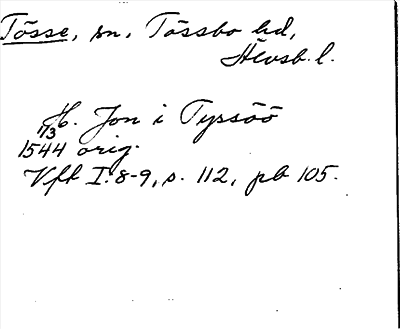 Tösse, sn, Tössbo hd,
Älvsb. l.
H. Jon i Tyssöö
17/3
1544 orig.
Vfh I: 8-9, s. 112, pb 105.